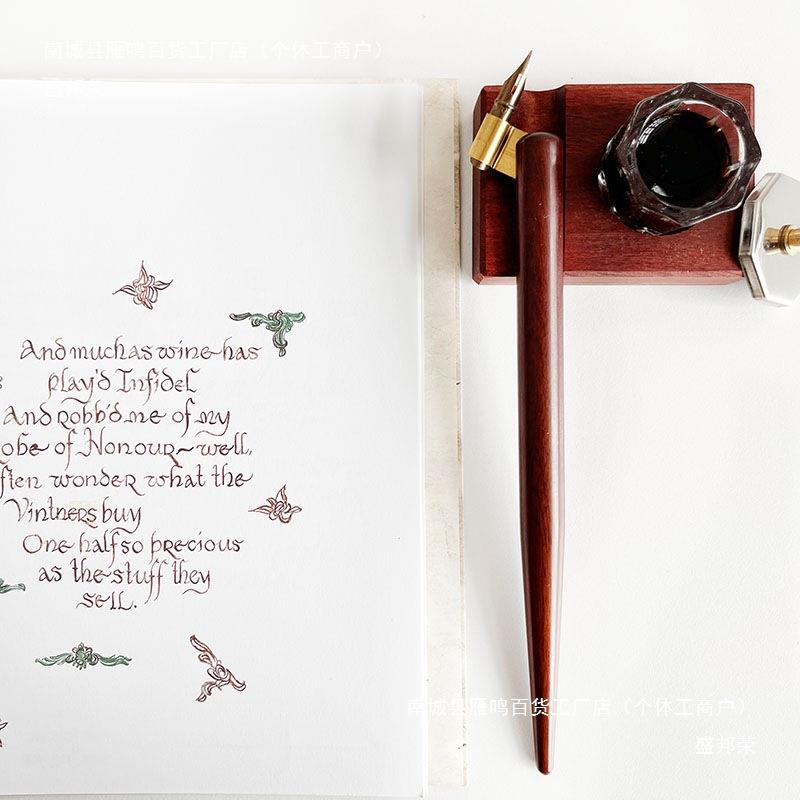 南城县雁鸣百货工厂店（个体工商户）
And much as wine has
play'd Infidel
And robb'd me of my
obe of Honour~well,
ften wonder what the
Vintners buy
One half so precious
as the stuff they
sell.
南城县雁鸣百货工厂店（个体工商户）
盛邦荣